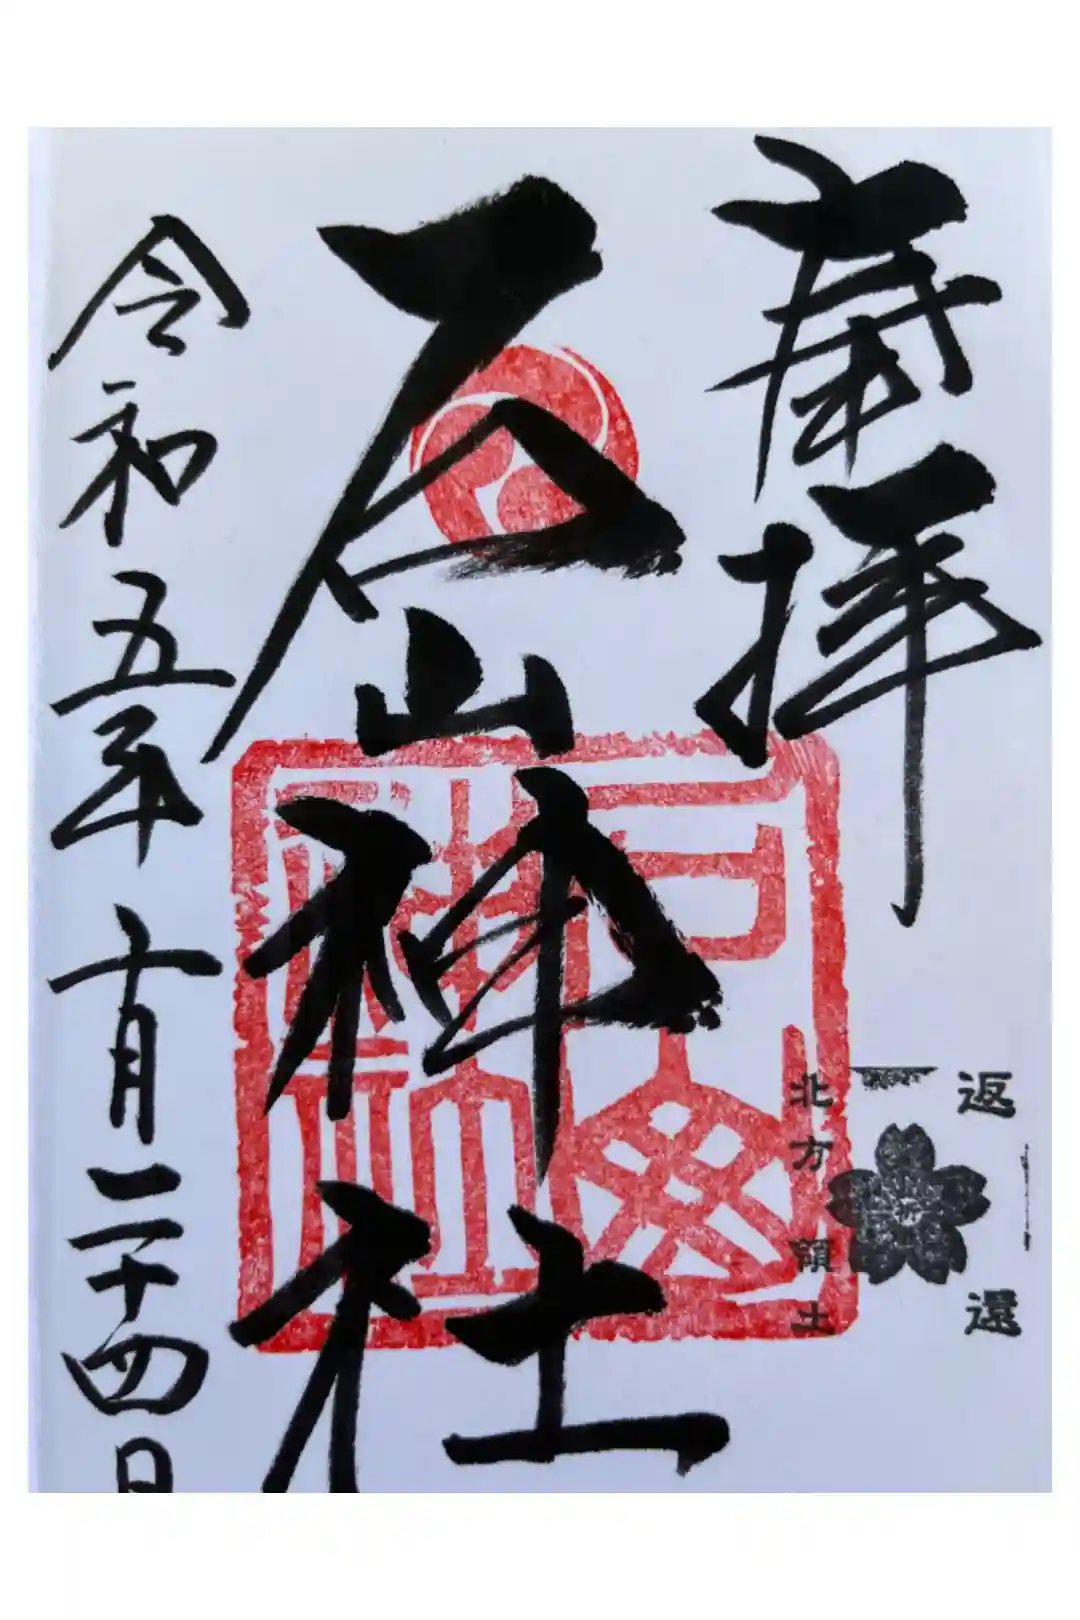 斎拝
返還
祈
北方領土
石山神社
石山神社
令和五年十月二十四日